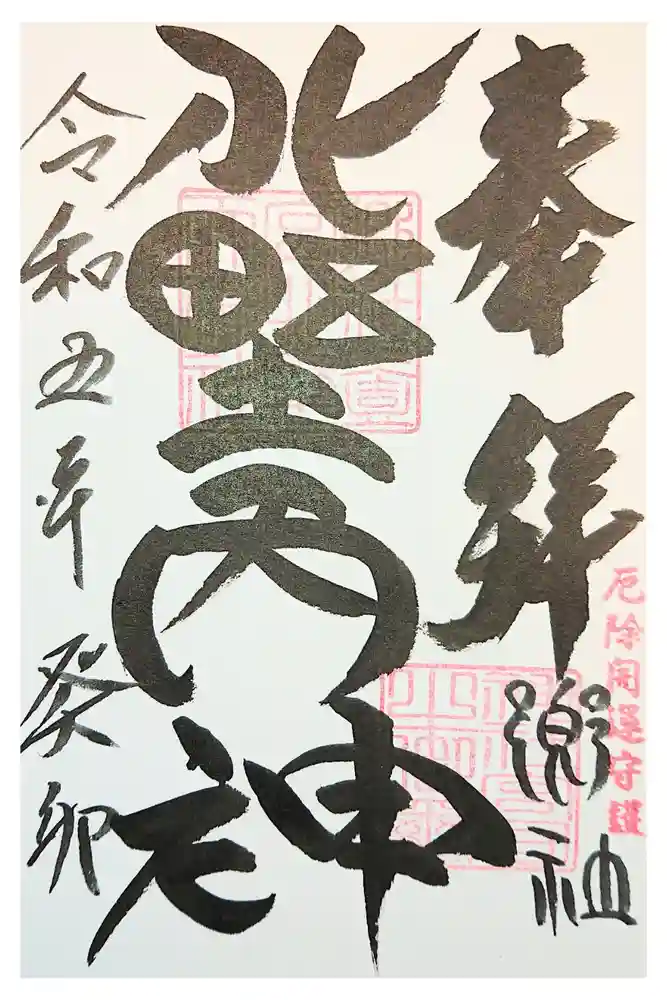 奉拝
厄除開運守護
北野天神
令和五年癸卯